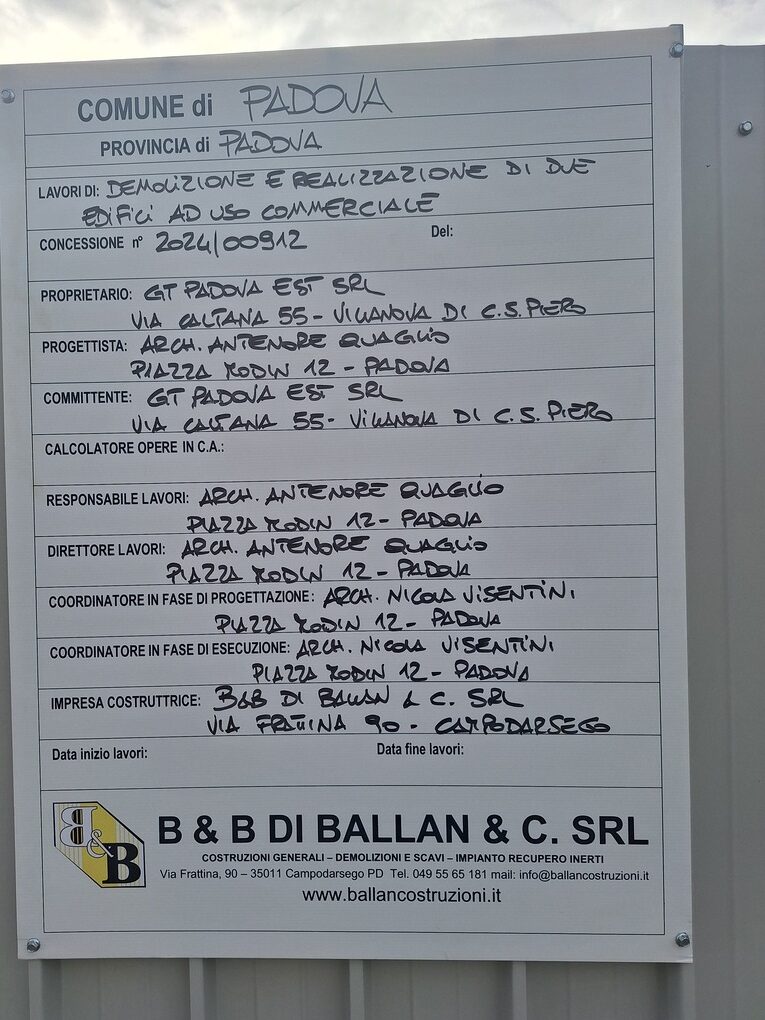 COMUNE di PADOVA
PROVINCIA di PADOVA
LAVORI DI: DEMOLIZIONE E REALIZZAZIONE DI DUE
EDIFICI AD USO COMMERCIALE
CONCESSIONE n° 2024/00912 Del:
PROPRIETARIO: GT PADOVA EST SRL
VIA CALTANA 55 - VILLANOVA DI C.S. PIERO
PROGETTISTA: ARCH. ANTENORE QUAGLIO
PIAZZA MODIN 12 - PADOVA
COMMITTENTE: GT PADOVA EST SRL
VIA CALTANA 55 - VILLANOVA DI C.S. PIERO
CALCOLATORE OPERE IN C.A.:
RESPONSABILE LAVORI: ARCH. ANTENORE QUAGLIO
PIAZZA MODIN 12 - PADOVA
DIRETTORE LAVORI: ARCH. ANTENORE QUAGLIO
PIAZZA MODIN 12 - PADOVA
COORDINATORE IN FASE DI PROGETTAZIONE: ARCH. NICOLA VISENTINI
PIAZZA MODIN 12 - PADOVA
COORDINATORE IN FASE DI ESECUZIONE: ARCH. NICOLA VISENTINI
PIAZZA MODIN 12 - PADOVA
IMPRESA COSTRUTTRICE: B&B DI BALLAN & C. SRL
VIA FRATTINA 90 - CAMPODARSEGO
Data inizio lavori: Data fine lavori:
B&B
B & B DI BALLAN & C. SRL
COSTRUZIONI GENERALI – DEMOLIZIONI E SCAVI – IMPIANTO RECUPERO INERTI
Via Frattina, 90 – 35011 Campodarsego PD Tel. 049 55 65 181 mail: info@ballancostruzioni.it
www.ballancostruzioni.it